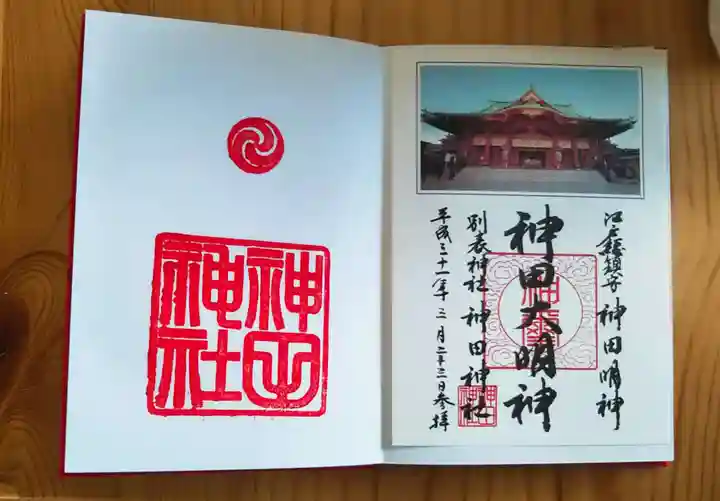 神田
神社
江戸総鎮守 神田明神
神田大明神
別表神社 神田神社
平成三十一年 三月二十三日参拝